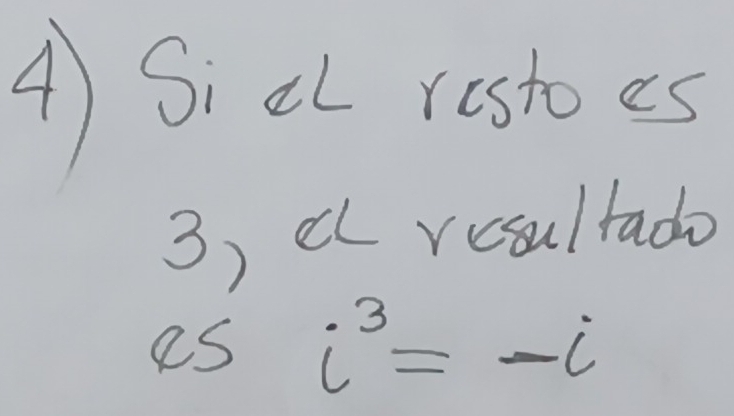 4) Si el resto es
3, el resultado
es i³ = -i